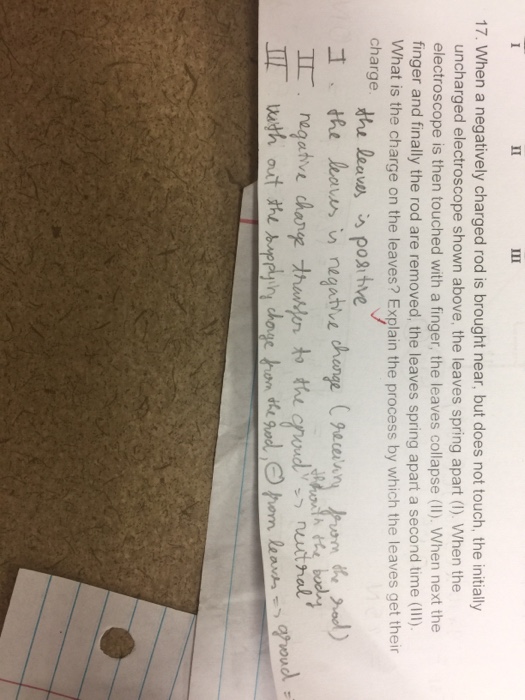 I II III
17. When a negatively charged rod is brought near, but does not touch, the initially
uncharged electroscope shown above, the leaves spring apart (I). When the
electroscope is then touched with a finger, the leaves collapse (II). When next the
finger and finally the rod are removed, the leaves spring apart a second time (III).
What is the charge on the leaves? Explain the process by which the leaves get their
charge. the leaves is positive
I. the leaves is negative charge (receiving from the rod)
through the body
II. negative charge transfer to the ground => neutral
III with out the charge from the rod, ⊖ from leaves => ground =